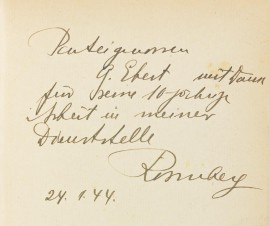 Parteigenossen
G. Ebert mit Dank
für seine 10-jährige
Arbeit in meiner
Dienststelle
Rosenberg
24.1.44.